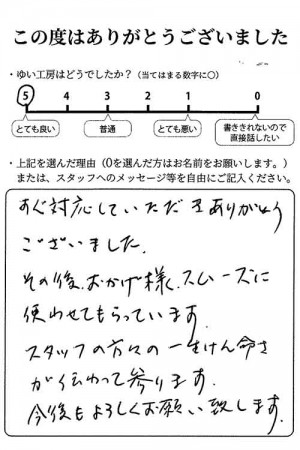 この度はありがとうございました
・ゆい工房はどうでしたか？（当てはまる数字に○）
5 4 3 2 1 0
とても良い 普通 とても悪い 書ききれないので直接話したい
・上記を選んだ理由（0を選んだ方はお名前をお願いします。）
または、スタッフへのメッセージ等を自由にご記入ください。
すぐ対応していただきありがとう
ございました。
その後、おかげ様で、スムーズに
使わせてもらっています。
スタッフの方々の一生けん命さ
が伝わって参ります。
今後もよろしくお願い致します。